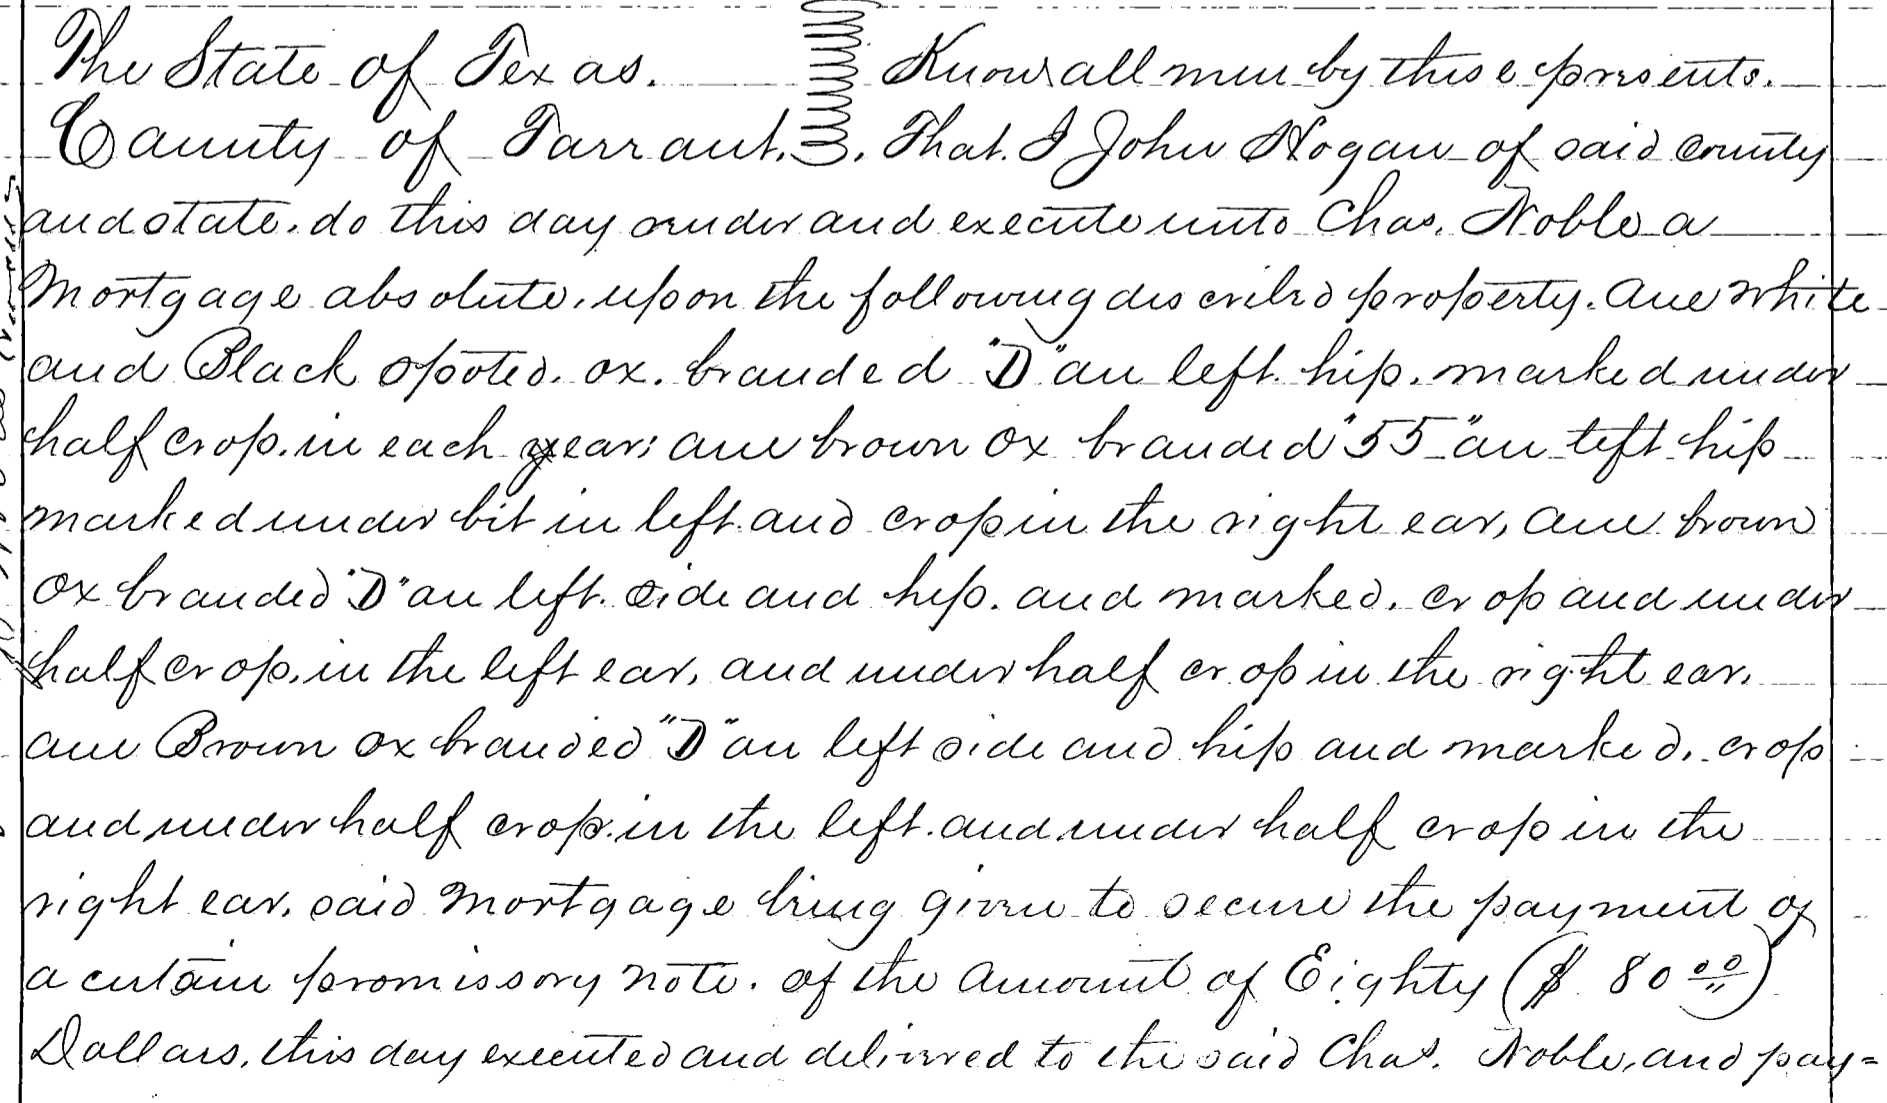 The State of Texas. Know all men by these presents.
County of Tarrant. That I John Hogan of said County
and state. do this day render and execute unto Chas. Noble a
Mortgage absolute, upon the following described property. One White
and Black spoted. ox. branded "D" on left hip. marked under
half crop. in each year; one brown ox branded "55" on left hip
marked under bit in left and crop in the right ear, One brown
ox branded "D" on left side and hip. and marked. crop and under
half crop, in the left ear, and under half crop in the right ear.
one Brown ox branded "D" on left side and hip and marked. crop
and under half crop. in the left. and under half crop in the
right ear. said Mortgage being given to secure the payment of
a certain promissory note. of the amount of Eighty ($ 80 00)
Dollars, this day executed and delivered to the said Chas. Noble, and pay=